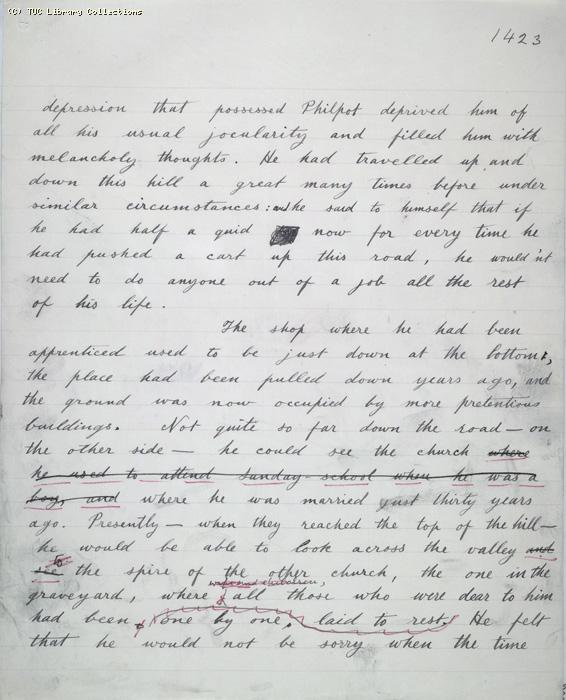 (C) TUC Library Collections
1423
depression that possessed Philpot deprived him of
all his usual jocularity and filled him with
melancholy thoughts. He had travelled up and
down this hill a great many times before under
similar circumstances: and he said to himself that if
he had half a quid now for every time he
had pushed a cart up this road, he would'nt
need to do anyone out of a job all the rest
of his life.
The shop where he had been
apprenticed used to be just down at the bottom,
the place had been pulled down years ago, and
the ground was now occupied by more pretentious
buildings. Not quite so far down the road — on
the other side — he could see the church where
he used to attend Sunday-school when he was a
boy, and where he was married just thirty years
ago. Presently — when they reached the top of the hill —
he would be able to look across the valley and
to
see the spire of the other church, the one in the
graveyard, where all those who were dear to him
had been one by one, laid to rest. He felt
that he would not be sorry when the time